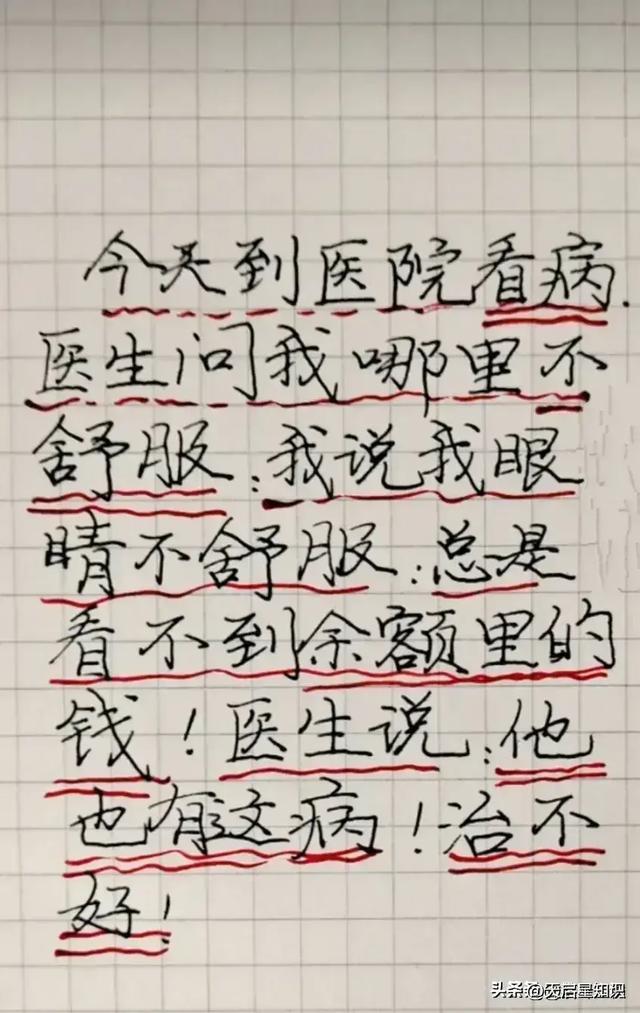 今天到医院看病.
医生问我哪里不
舒服:我说我眼
睛不舒服:总是
看不到余额里的
钱!医生说:他
也有这病!治不
好!
头条@天启星知识